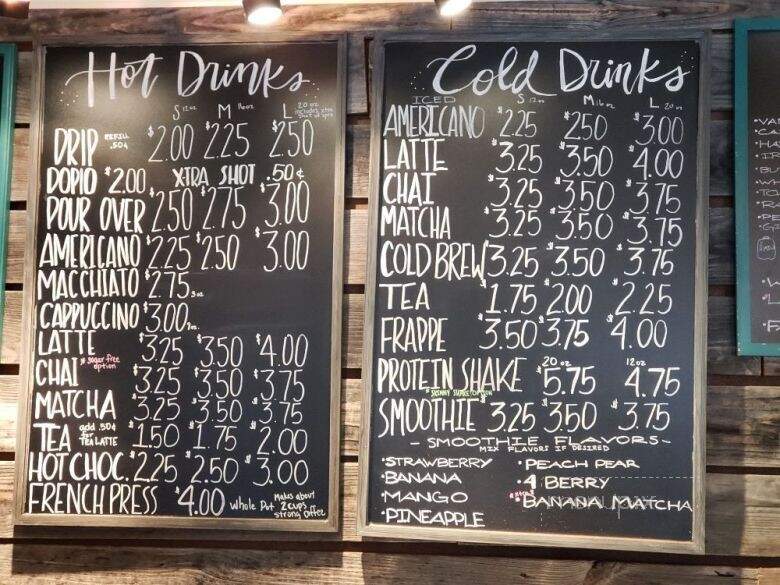 Hot Drinks
S 12 oz M 16 oz L 20 oz
DRIP REFILL .50¢ $2.00 $2.25 $2.50
DOPIO $2.00 XTRA SHOT .50¢
POUR OVER $2.50 $2.75 $3.00
AMERICANO $2.25 $2.50 $3.00
MACCHIATO $2.75
CAPPUCCINO $3.00
LATTE $3.25 $3.50 $4.00
* sugar free option
CHAI $3.25 $3.50 $3.75
MATCHA $3.25 $3.50 $3.75
TEA add .50¢ for TEA LATTE $1.50 $1.75 $2.00
HOT CHOC. $2.25 $2.50 $3.00
FRENCH PRESS $4.00 Whole Pot Makes about 2 cups strong coffee
Cold Drinks
ICED S 12 oz M 16 oz L 20 oz
AMERICANO $2.25 $2.50 $3.00
LATTE $3.25 $3.50 $4.00
CHAI $3.25 $3.50 $3.75
MATCHA $3.25 $3.50 $3.75
COLD BREW $3.25 $3.50 $3.75
TEA $1.75 $2.00 $2.25
FRAPPE $3.50 $3.75 $4.00
PROTEIN SHAKE 20 oz $5.75 12 oz $4.75
SMOOTHIE $3.25 $3.50 $3.75
- SMOOTHIE FLAVORS -
MIX FLAVORS IF DESIRED
• STRAWBERRY • PEACH PEAR
• BANANA • 4 BERRY
• MANGO • BANANA MATCHA
• PINEAPPLE